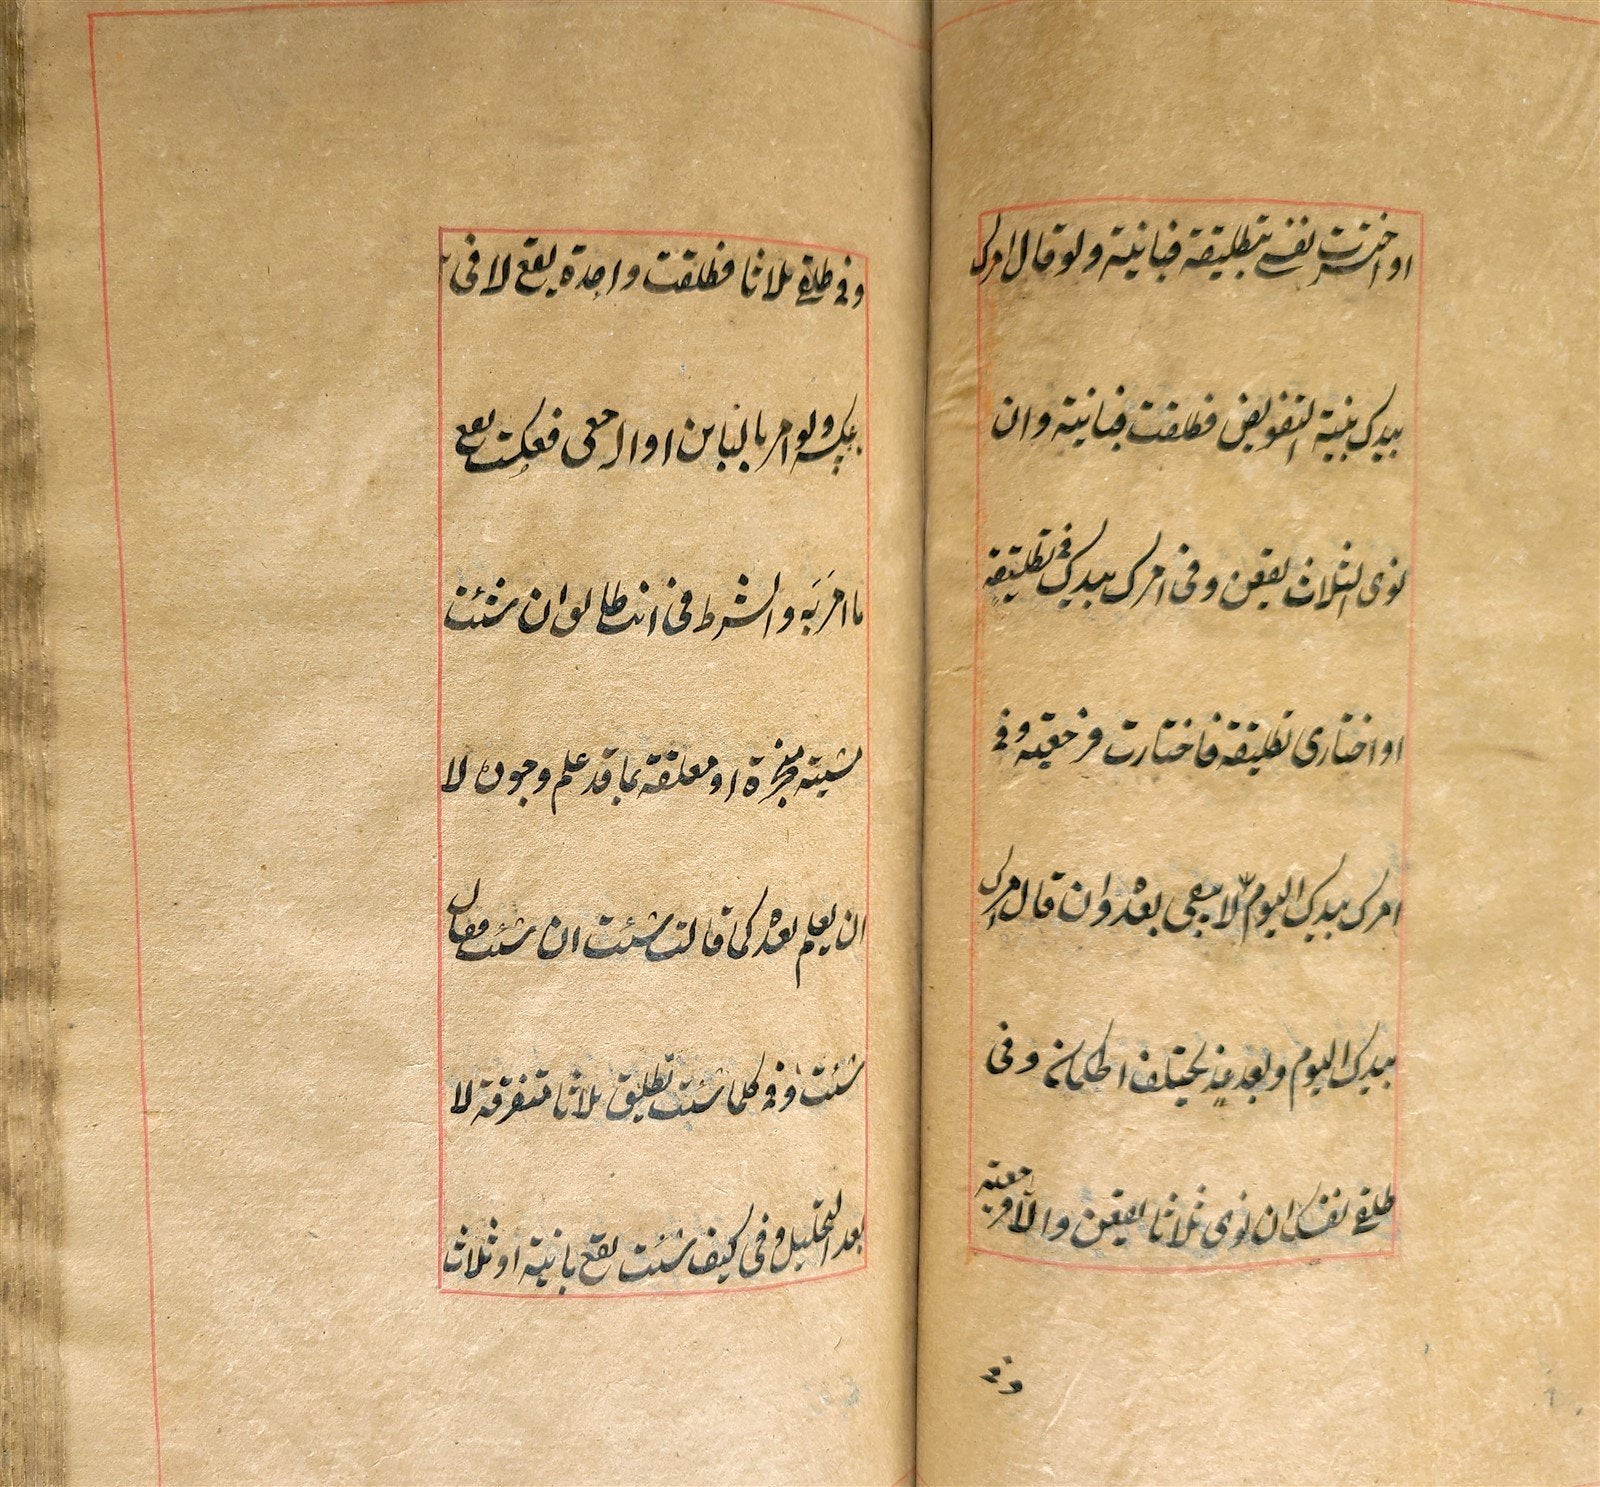 او اخترت نفسے بتطليقة فبائنة ولو قال امرك
بيدك بنية التفويض فطلقت فبائنة وان
نوى الثلاث يقعن وفى امرك بيدك فى تطليقة
او اختارى تطليقة فاختارت فرجعية وفى
امرك بيدك اليوم لا يبقى بعده وان قال امرك
بيدك اليوم وبعد غد يختلف الحكمان وفى
طلقے نفسك ان نوى ثلاثا يقعن والا فرجعية
وفى
وفى طلقے ثلاثا فطلقت واحدة يقع لا فى
عكسه ولو امر بالبائن او الرجعى فعكست يقع
ما امر به والشرط فى انت طالق ان شئت
مشية منجزة او معلقة بما قد علم وجوده لا
ان يعلم بعده كما قالت شئت ان شئت فقال
شئت وفى كلما شئت تطليق ثلاثا متفرقة لا
بعد التحليل وفى كيف شئت يقع بائنة او ثلاث